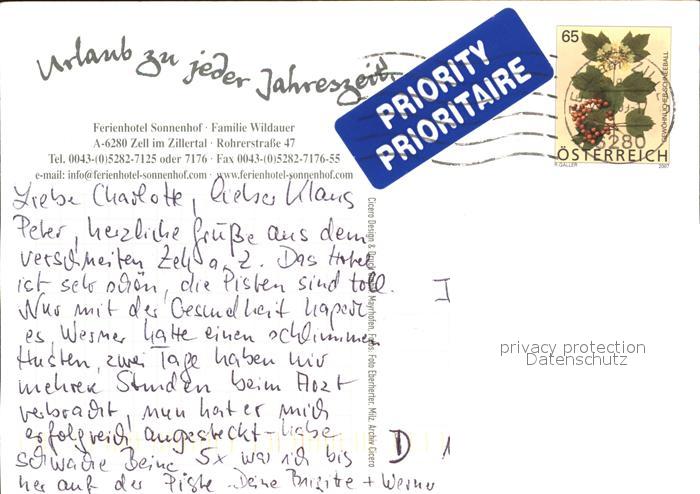 Urlaub zu jeder Jahreszeit.
PRIORITY
PRIORITAIRE
65
GEWÖHNLICHER SCHNEEBALL
6280
ÖSTERREICH
R.GALLER 2007
Ferienhotel Sonnenhof · Familie Wildauer
A-6280 Zell im Zillertal · Rohrerstraße 47
Tel. 0043-(0)5282-7125 oder 7176 · Fax 0043-(0)5282-7176-55
e-mail: info@ferienhotel-sonnenhof.com · www.ferienhotel-sonnenhof.com
Liebe Charlotte, lieber Klaus
Peter, herzliche Grüße aus dem
verschneiten Zell a. Z. Das Hotel
ist sehr schön, die Pisten sind toll.
Nur mit der Gesundheit hapert
es, Werner hatte einen schlimmen
Husten, zwei Tage haben wir
mehrere Stunden beim Arzt
verbracht, nun hat er mich
erfolgreich angesteckt - habe
schwache Beine. 5x war ich bis
her auf der Piste. Deine Brigitte + Werner
Cicero Design & Druck Mayrhofen, Fotos: Foto Eberharter, Milz, Archiv Cicero
D
privacy protection
Datenschutz